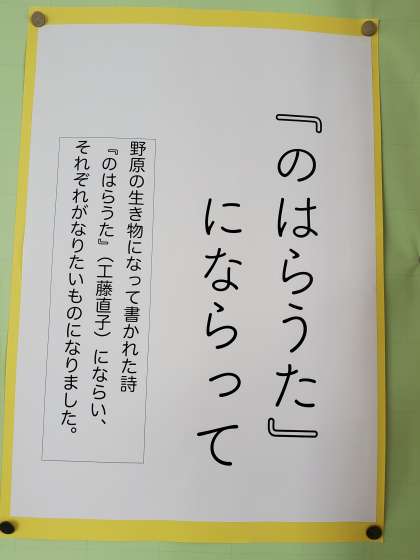 『のはらうた』
にならって
野原の生き物になって書かれた詩
『のはらうた』（工藤直子）にならい、
それぞれがなりたいものになりました。